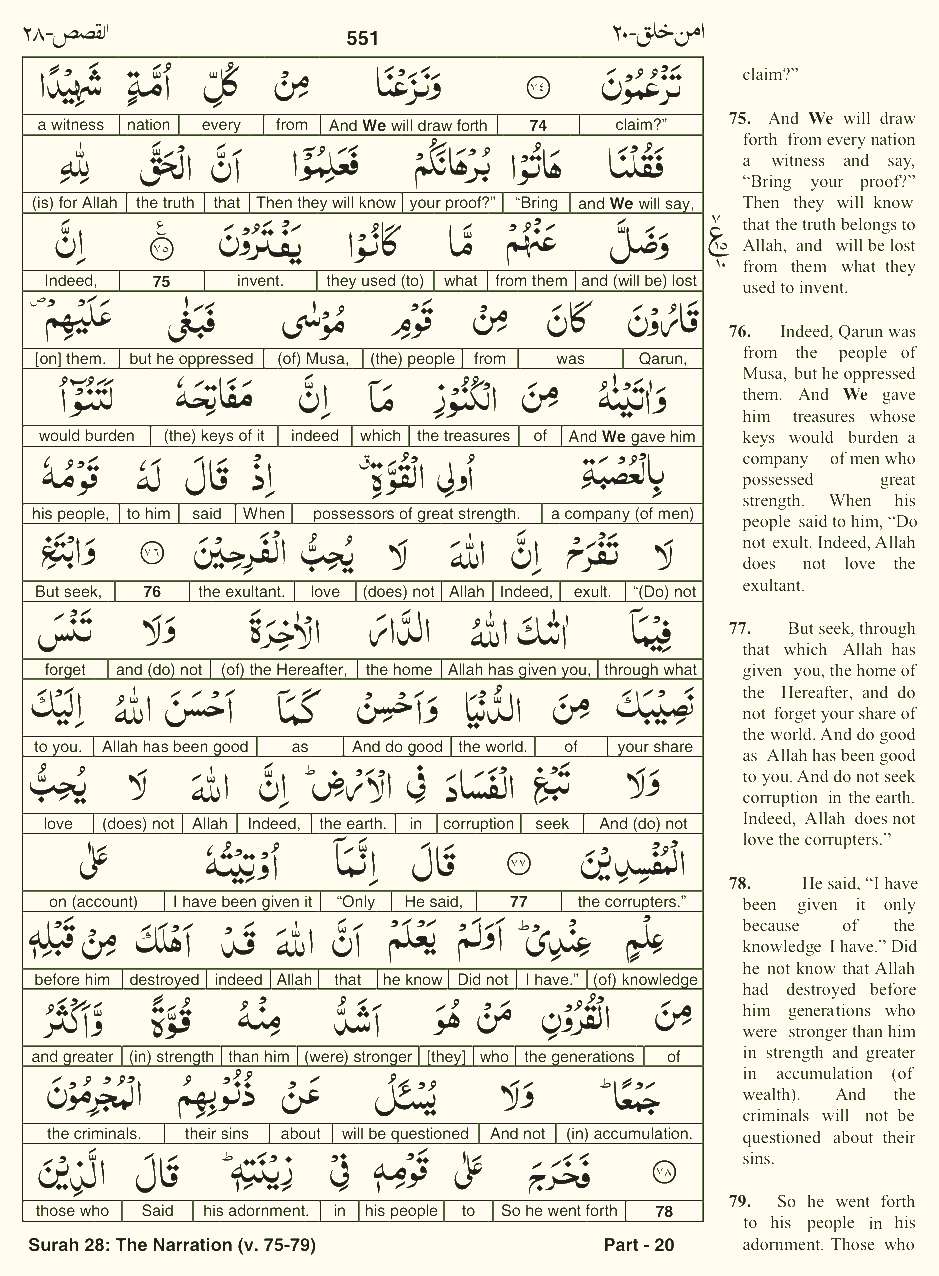 القصص-٢٨ 551 امن خلق-٢٠
تَزْعُمُوْنَ ﴿٧٤﴾ وَنَزَعْنَا مِنْ كُلِّ اُمَّةٍ شَهِيْدًا
claim?” 74 And We will draw forth from every nation a witness
فَقُلْنَا هَاتُوْا بُرْهَانَكُمْ فَعَلِمُوْۤا اَنَّ الْحَقَّ لِلّٰهِ
and We will say, “Bring your proof?” Then they will know that the truth (is) for Allah
وَضَلَّ عَنْهُمْ مَّا كَانُوْا يَفْتَرُوْنَ ﴿٧٥﴾ ع اِنَّ
and (will be) lost from them what they used (to) invent. 75 Indeed,
٧ ع ١٥ ١٠
قَارُوْنَ كَانَ مِنْ قَوْمِ مُوْسٰى فَبَغٰى عَلَيْهِمْ ص
Qarun, was from (the) people (of) Musa, but he oppressed [on] them.
وَاٰتَيْنٰهُ مِنَ الْكُنُوْزِ مَاۤ اِنَّ مَفَاتِحَهٗ لَتَنُوْٓاُ
And We gave him of the treasures which indeed (the) keys of it would burden
بِالْعُصْبَةِ اُولِى الْقُوَّةِ ق اِذْ قَالَ لَهٗ قَوْمُهٗ
a company (of men) possessors of great strength. When said to him his people,
لَا تَفْرَحْ اِنَّ اللّٰهَ لَا يُحِبُّ الْفَرِحِيْنَ ﴿٧٦﴾ وَابْتَغِ
“(Do) not exult. Indeed, Allah (does) not love the exultant. 76 But seek,
فِيْمَاۤ اٰتٰىكَ اللّٰهُ الدَّارَ الْاٰخِرَةَ وَلَا تَنْسَ
through what Allah has given you, the home (of) the Hereafter, and (do) not forget
نَصِيْبَكَ مِنَ الدُّنْيَا وَاَحْسِنْ كَمَاۤ اَحْسَنَ اللّٰهُ اِلَيْكَ
your share of the world. And do good as Allah has been good to you.
وَلَا تَبْغِ الْفَسَادَ فِى الْاَرْضِ ؕ اِنَّ اللّٰهَ لَا يُحِبُّ
And (do) not seek corruption in the earth. Indeed, Allah (does) not love
الْمُفْسِدِيْنَ ﴿٧٧﴾ قَالَ اِنَّمَاۤ اُوْتِيْتُهٗ عَلٰى
the corrupters.” 77 He said, “Only I have been given it on (account)
عِلْمٍ عِنْدِىْ ؕ اَوَلَمْ يَعْلَمْ اَنَّ اللّٰهَ قَدْ اَهْلَكَ مِنْ قَبْلِهٖ
(of) knowledge I have.” Did not he know that Allah indeed destroyed before him
مِنَ الْقُرُوْنِ مَنْ هُوَ اَشَدُّ مِنْهُ قُوَّةً وَّاَكْثَرُ
of the generations who [they] (were) stronger than him (in) strength and greater
جَمْعًا ؕ وَلَا يُسْـَٔلُ عَنْ ذُنُوْبِهِمُ الْمُجْرِمُوْنَ
(in) accumulation. And not will be questioned about their sins the criminals.
﴿٧٨﴾ فَخَرَجَ عَلٰى قَوْمِهٖ فِىْ زِيْنَتِهٖ ؕ قَالَ الَّذِيْنَ
78 So he went forth to his people in his adornment. Said those who
claim?”
75. And We will draw
forth from every nation
a witness and say,
“Bring your proof?”
Then they will know
that the truth belongs to
Allah, and will be lost
from them what they
used to invent.
76. Indeed, Qarun was
from the people of
Musa, but he oppressed
them. And We gave
him treasures whose
keys would burden a
company of men who
possessed great
strength. When his
people said to him, “Do
not exult. Indeed, Allah
does not love the
exultant.
77. But seek, through
that which Allah has
given you, the home of
the Hereafter, and do
not forget your share of
the world. And do good
as Allah has been good
to you. And do not seek
corruption in the earth.
Indeed, Allah does not
love the corrupters.”
78. He said, “I have
been given it only
because of the
knowledge I have.” Did
he not know that Allah
had destroyed before
him generations who
were stronger than him
in strength and greater
in accumulation (of
wealth). And the
criminals will not be
questioned about their
sins.
79. So he went forth
to his people in his
adornment. Those who
Surah 28: The Narration (v. 75-79) Part - 20